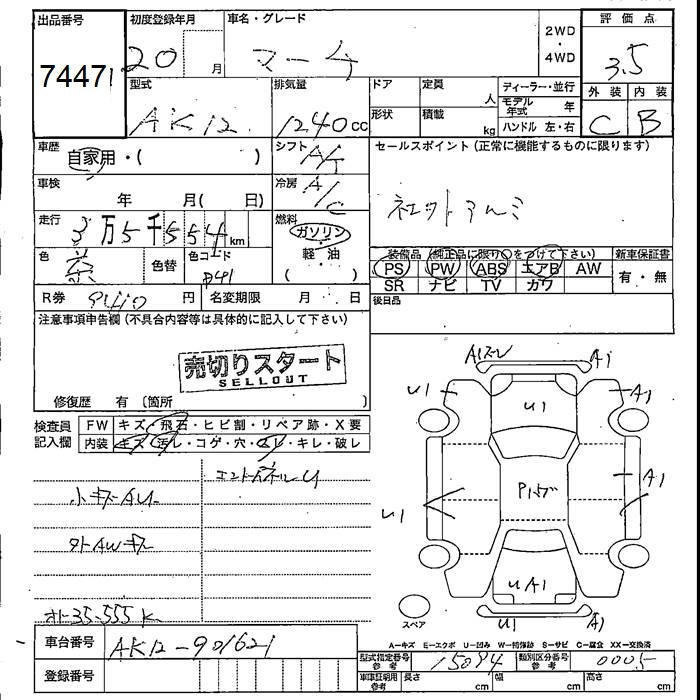 出品番号 初度登録年月 車名・グレード 2WD・4WD 評価点
74471 20 月 マーチ 3.5
型式 排気量 ドア 定員 人 ディーラー・並行 外装 内装
AK12 1240cc 形状 積載 kg モデル年式 年 C B
ハンドル 左・右
車歴 自家用・( ) シフト A/T セールスポイント (正常に機能するものに限ります)
車検 年 月( 日) 冷房 A/C
走行 3万5千554km 燃料 ガソリン・軽油 ( )
色 茶 色替 色コード 装備品 (純正品に限り○をつけて下さい) 新車保証書
PS PW ABS エアB AW 有・無
SR ナビ TV カワ
R券 9440円 名変期限 月 日 後日品
注意事項申告欄 (不具合内容等は具体的に記入して下さい)
売切りスタート
SELLOUT
修復歴 有 (箇所 )
A1 U1 A1
U1
検査員記入欄 FW キズ・飛石・ヒビ割・リペア跡・X要
内装 キズ・汚レ・コゲ・穴・スレ・キレ・破レ
エンドパネルU
小キズAU A1
U1
外AWキズ
UA1
スペア
U1 A1
オト35-555K
A=キズ E=エクボ U=凹み W=補修跡 S=サビ C=腐食 XX=交換済
車台番号 AK12-901621 型式指定番号参考 15094 類別区分番号参考 0005
登録番号 車庫証明用参考 長さ cm 幅 cm 高さ cm